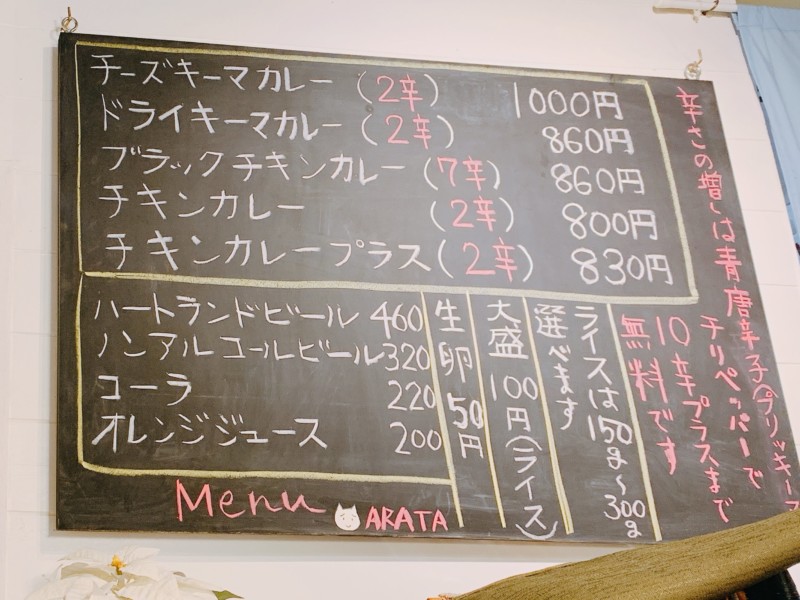 チーズキーマカレー (2辛) 1000円
ドライキーマカレー (2辛) 860円
ブラックチキンカレー (7辛) 860円
チキンカレー (2辛) 800円
チキンカレープラス (2辛) 830円
ハートランドビール 460
ノンアルコールビール 320
コーラ 220
オレンジジュース 200
生卵50円
大盛100円(ライス)
ライスは150g〜300g
選べます
辛さの増しは青唐辛子(プリッキーヌ
チリペッパーで
10辛プラスまで
無料です
Menu ARATA